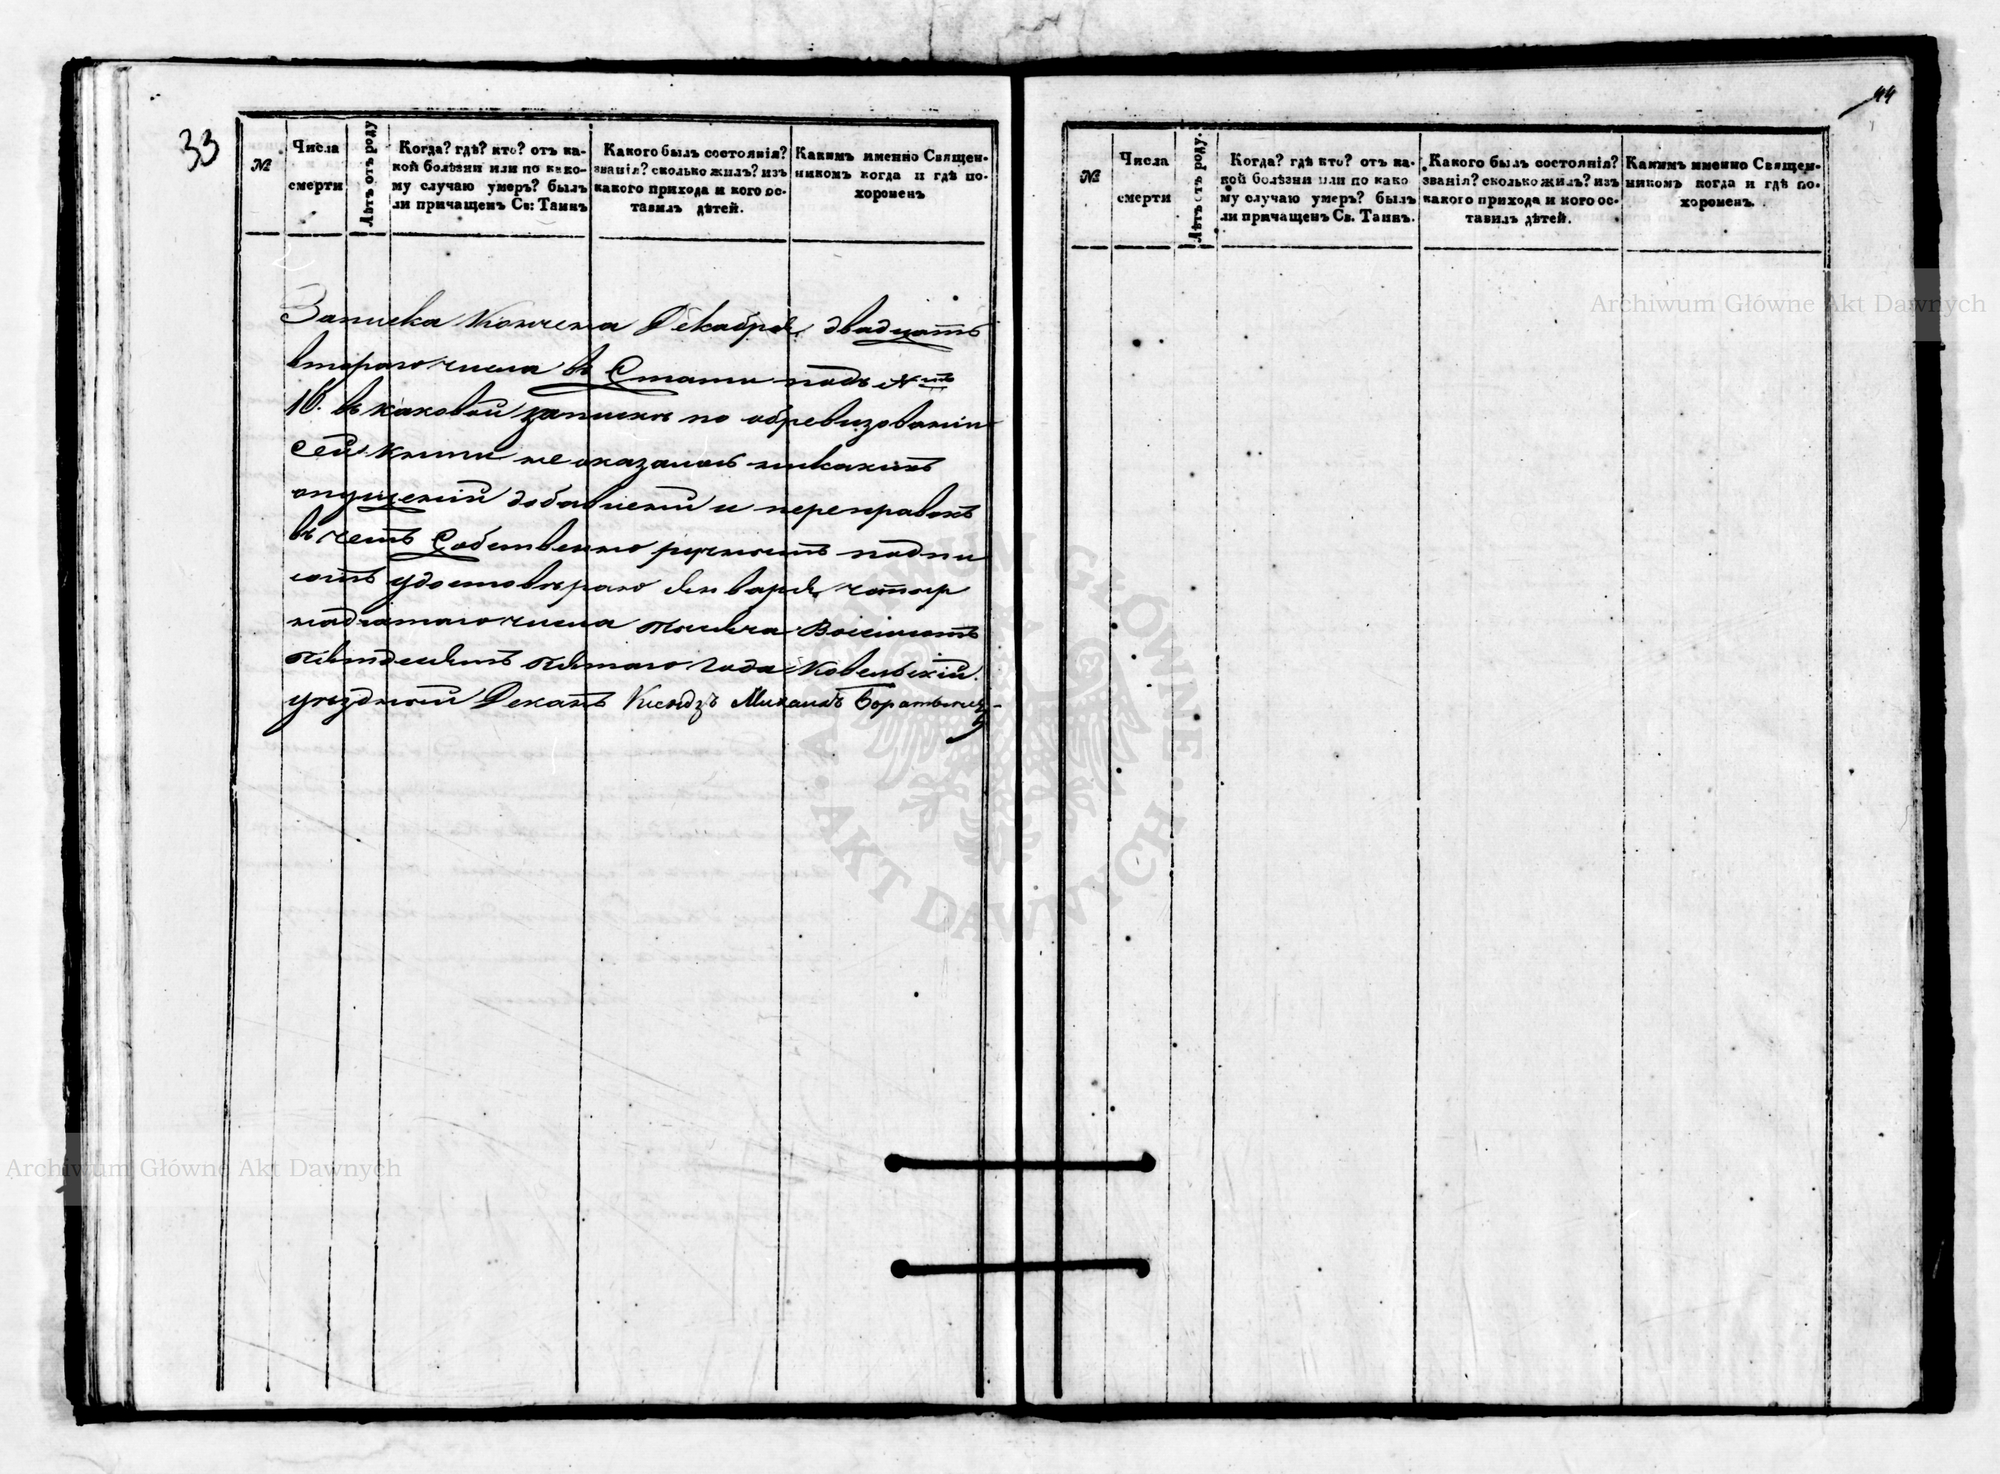 33
№
Числа
смерти
Лѣтъ отъ роду
Когда? гдѣ? кто? отъ ка-
кой болѣзни или по како-
му случаю умеръ? былъ
ли причащенъ Св: Таинъ
Какого былъ состоянія?
званія? сколько жилъ? изъ
какого прихода и кого ос-
тавилъ дѣтей.
Какимъ именно Священ-
никомъ когда и гдѣ по-
хороненъ
Записка Кончена Декабря двадцать
втораго числа въ Статьи подъ №мъ
16. въ каковой запискѣ по обревизованіи
сей книги не оказалось никакихъ
опущеній добавленій и переправокъ
въ чемъ Собственно ручною подпи
сью удостовѣряю Января четыр
надцатаго числа тысяча Восемьсотъ
пятьдесятъ пятаго года Ковельскій
уѣздный Деканъ Ксендзъ Михаилъ
44
№
Числа
смерти
Лѣтъ отъ роду.
Когда? гдѣ кто? отъ ка-
кой болѣзни или по како
му случаю умеръ? былъ
ли причащенъ Св. Таинъ.
Какого былъ состоянія?
званія? сколько жилъ? изъ
какого прихода и кого ос-
тавилъ дѣтей.
Какимъ именно Священ-
никомъ когда и гдѣ по-
хороненъ.
Archiwum Główne Akt Dawnych
ARCHIWUM GŁÓWNE · AKT DAWNYCH ·
Archiwum Główne Akt Dawnych